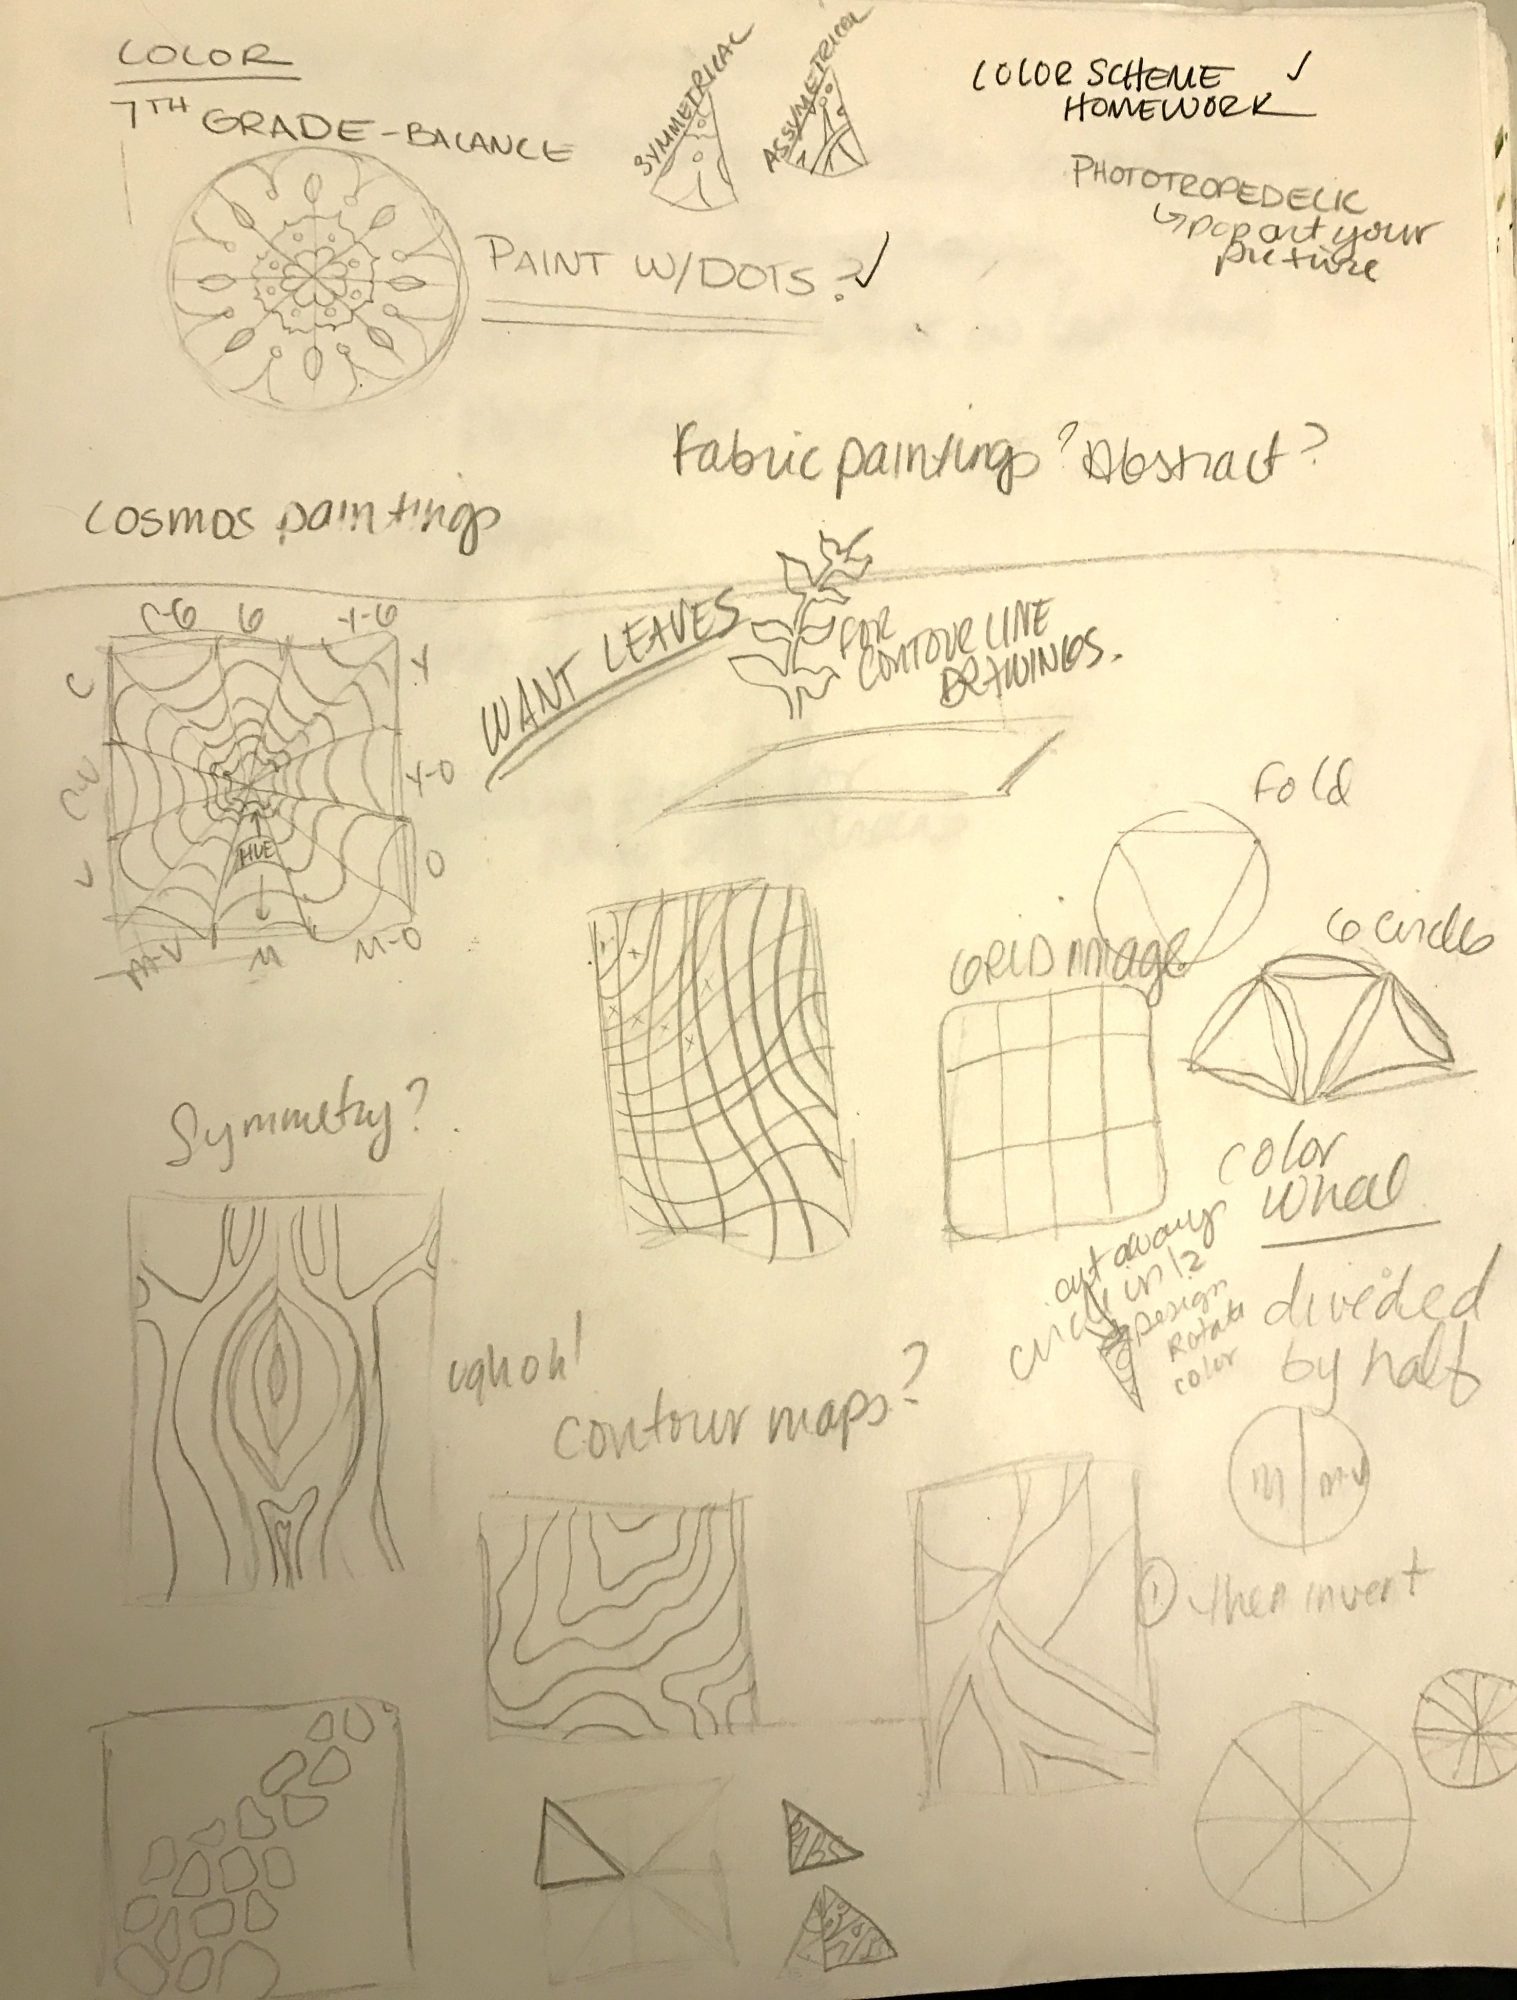 COLOR
7TH GRADE-BALANCE
SYMMETRICAL
ASSYMETRICAL
COLOR SCHEME ✓
HOMEWORK
PHOTOTROPEDELIC
↳pop art your
picture
PAINT W/DOTS?✓
Fabric paintings? Abstract?
cosmos paintings
C-G G Y-G
C Y
C-V Y-O
HUE
V O
M-V M M-O
WANT LEAVES
FOR
CONTOUR LINE
DRAWINGS.
Fold
GRID image
6 circles
Symmetry?
Color
Wheel
cut away
circle in 12
Design
Rotate
color
divided
by half
ugh oh!
contour maps?
M M-V
① then invent